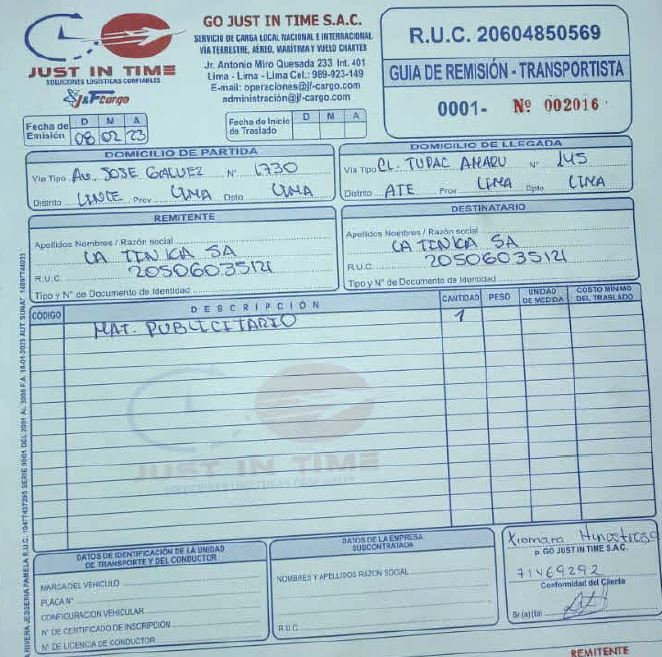 JUST IN TIME
SOLUCIONES LOGÍSTICAS CONFIABLES
J&F Cargo
GO JUST IN TIME S.A.C.
SERVICIO DE CARGA LOCAL NACIONAL E INTERNACIONAL
VÍA TERRESTRE, AÉREO, MARÍTIMA Y VUELO CHARTER
Jr. Antonio Miro Quesada 233 Int. 401
Lima - Lima - Lima Cel.: 989-923-149
E-mail: operaciones@jf-cargo.com
administración@jf-cargo.com
R.U.C. 20604850569
GUIA DE REMISIÓN - TRANSPORTISTA
0001- Nº 002016
Fecha de Emisión D M A
08 02 23
Fecha de Inicio de Traslado D M A
DOMICILIO DE PARTIDA
Vía Tipo AV. JOSE GALVEZ N° 1730
Distrito LINCE Prov LIMA Dpto LIMA
DOMICILIO DE LLEGADA
Vía Tipo CL. TUPAC AMARU N° 145
Distrito ATE Prov LIMA Dpto LIMA
REMITENTE
Apellidos Nombres / Razón social
LA TINKA SA
R.U.C. 20506035121
Tipo y N° de Documento de Identidad
DESTINATARIO
Apellidos Nombres / Razón social
LA TINKA SA
R.U.C. 20506035121
Tipo y N° de Documento de Identidad
CÓDIGO DESCRIPCIÓN CANTIDAD PESO UNIDAD DE MEDIDA COSTO MÍNIMO DEL TRASLADO
MAT. PUBLICITARIO 1
JUST IN TIME
SOLUCIONES LOGISTICAS CONFIABLES
DATOS DE IDENTIFICACIÓN DE LA UNIDAD
DE TRANSPORTE Y DEL CONDUCTOR
MARCA DEL VEHICULO
PLACA N°
CONFIGURACION VEHICULAR
N° DE CERTIFICADO DE INSCRIPCIÓN
N° DE LICENCIA DE CONDUCTOR
DATOS DE LA EMPRESA
SUBCONTRATADA
NOMBRES Y APELLIDOS RAZON SOCIAL
R.U.C.
Xiomara
p. GO JUST IN TIME S.A.C.
71469292
Conformidad del Cliente
Sr(a)(ta)
REMITENTE